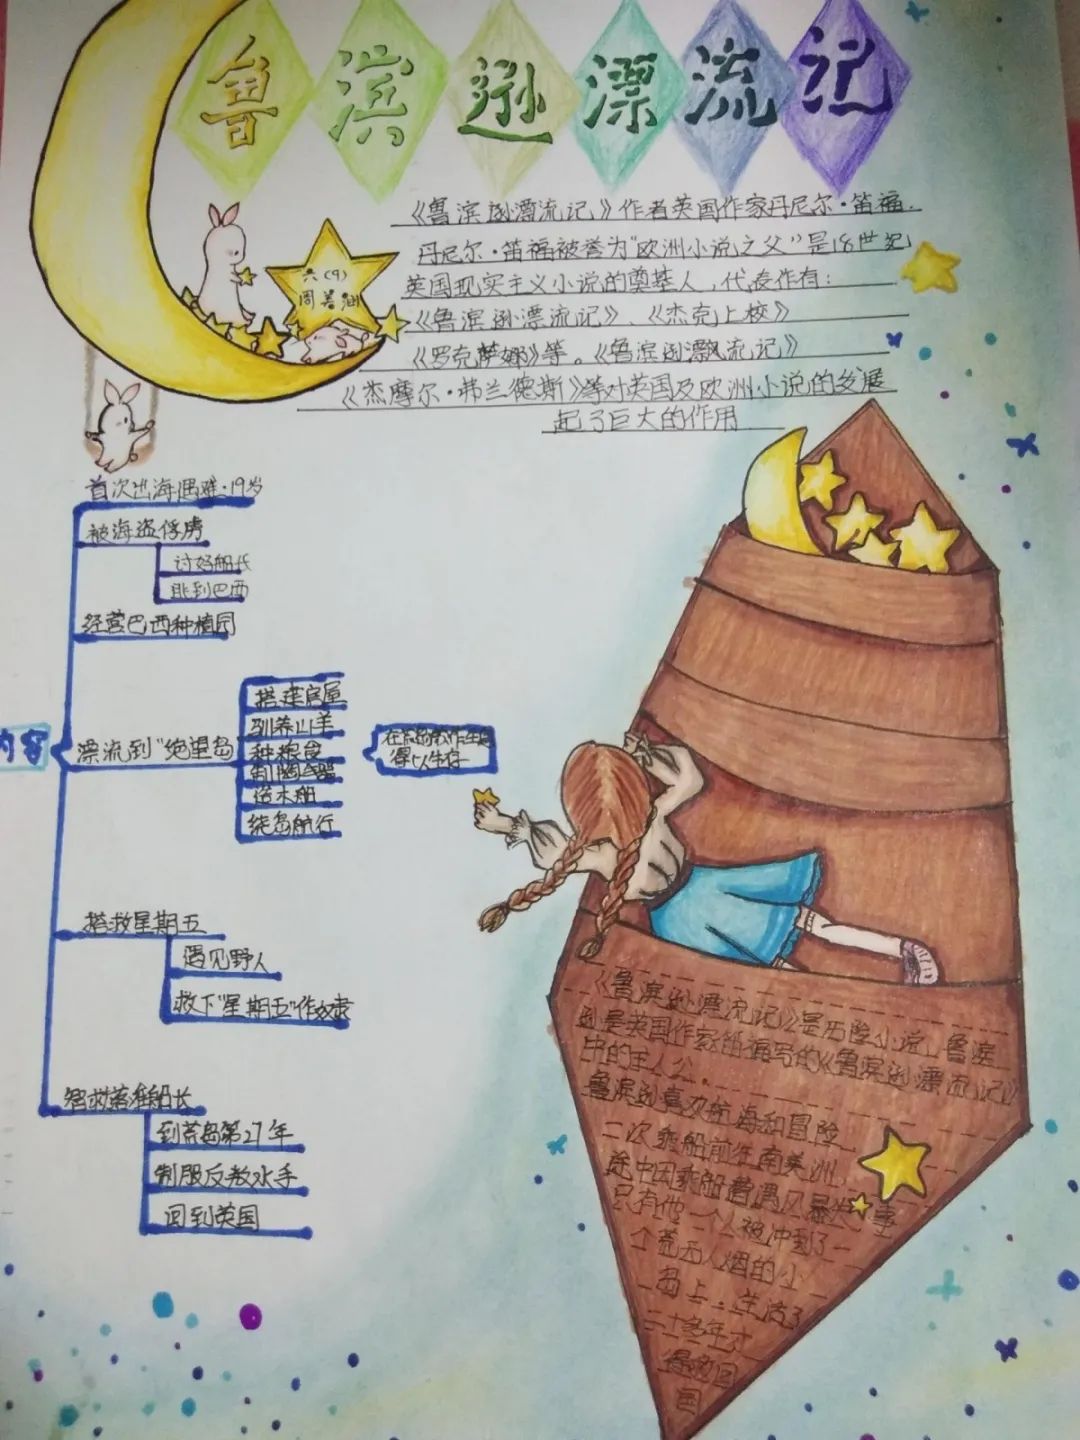 鲁滨逊漂流记
《鲁滨逊漂流记》作者英国作家丹尼尔·笛福.
丹尼尔·笛福被誉为"欧洲小说之父"是18世纪
英国现实主义小说的奠基人,代表作有:
《鲁滨逊漂流记》、《杰克上校》
《罗克萨娜》等。《鲁滨逊飘流记》
《杰摩尔·弗兰德斯》等对英国及欧洲小说的发展
起了巨大的作用
六(9)
周
内容
首次出海遇难·19岁
被海盗俘虏
讨好船长
逃到巴西
经营巴西种植园
漂流到"绝望岛
搭建房屋
驯养山羊
种粮食
制陶器
造木船
绕岛航行
在荒岛
得以生存
搭救星期五
遇见野人
救下"星期五"作奴隶
智救落难船长
到荒岛第27年
制服反叛水手
回到英国
《鲁滨逊漂流记》是历险小说,鲁滨
逊是英国作家笛福写的《鲁滨逊漂流记》
中的主人公.
鲁滨逊喜欢航海和冒险
二次乘船前往南美洲,
途中因乘船遭遇风暴失事
只有他一个人被冲到了
个荒无人烟的小
岛上.生活了
二十多年才
得救回
国